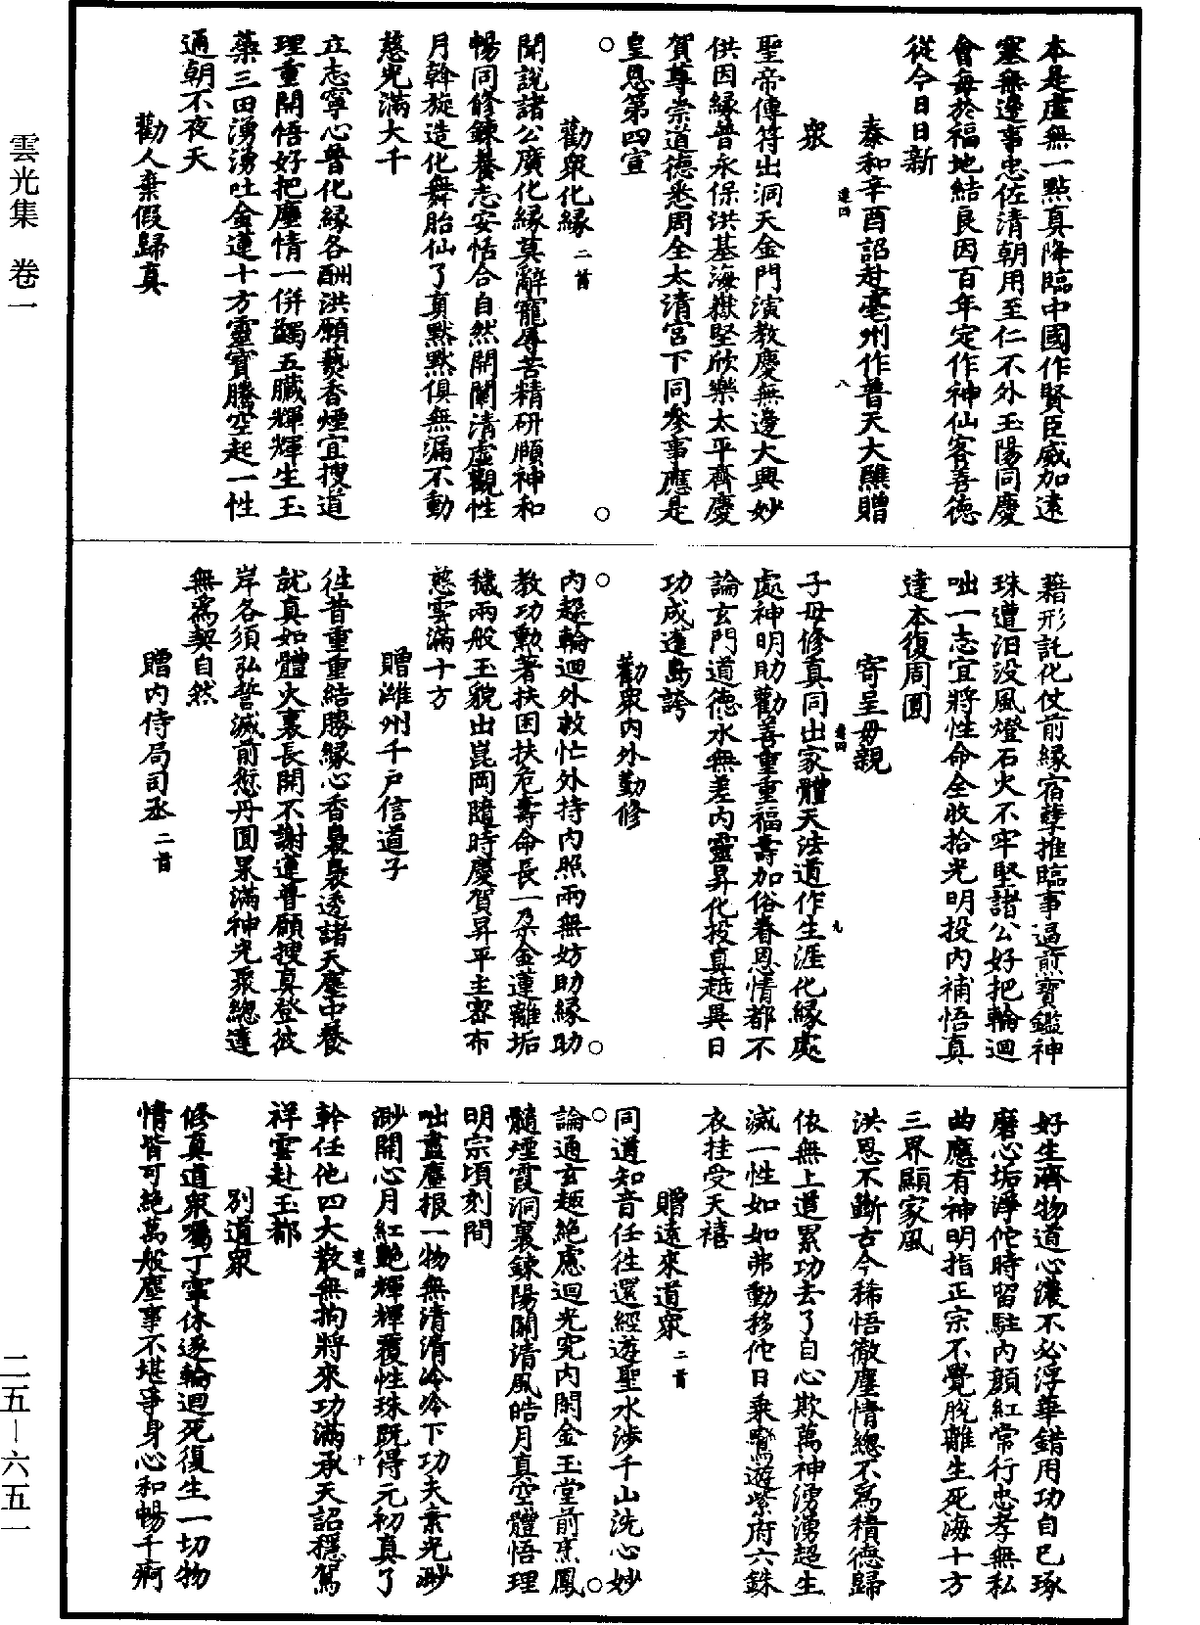 雲光集　卷一
二五－六五一
本是虛無一點真降臨中國作賢臣威加遠
塞無邊事忠佐清朝用至仁不外玉陽同慶
會每於福地結良因百年定作神仙客善德
從今日日新
泰和辛酉詔赴亳州作普天大醮贈
衆
聖帝傳符出洞天金門演教慶無邊大興妙
供因緣普永保洪基海嶽堅欣樂太平齊慶
賀尊崇道德悉周全太清宮下同參事應是
皇恩第四宣
勸衆化緣二首
聞說諸公廣化緣莫辭寵辱苦精研頤神和
暢同修鍊養志安恬合自然開闡清虛觀性
月斡旋造化舞胎仙了真默默俱無漏不動
慈光滿大千
立志寧心普化緣各酬洪願爇香煙宜搜道
理重開悟好把塵情一併蠲五臟輝輝生玉
蘂三田湧湧吐金蓮十方靈寶騰空起一性
通朝不夜天
勸人棄假歸真
藉形託化仗前緣宿孽推臨事逼煎寶鑑神
珠遭汩没風燈石火不牢堅諸公好把輪迴
咄一志宜將性命全收拾光明投內補悟真
達本復周圓
寄呈母親
子母修真同出家體天法道作生涯化緣處
處神明助勸善重重福壽加俗眷恩情都不
論玄門道德永無差內靈昇化投真趣異日
功成蓬島誇
勸衆內外勤修
內超輪迴外救忙外持內照兩無妨助緣助
教功勳著扶困扶危壽命長一朶金蓮離垢
穢兩般玉貌出崑岡隨時慶賀昇平主密布
慈雲滿十方
贈濰州千戶信道子
徃昔重重結勝緣心香裊裊透諸天塵中養
就真如體火裏長開不謝蓮普願搜真登彼
岸各須弘誓滅前愆丹圓果滿神光聚總達
無爲契自然
贈內侍局司丞二首
好生濟物道心濃不必浮華錯用功自已琢
磨心垢淨佗時留駐內顏紅常行忠孝無私
曲應有神明指正宗不覺脫離生死海十方
三界顯家風
洪恩不斷古今稀悟徹塵情總不爲積德歸
依無上道累功去了自心欺萬神湧湧超生
滅一性如如弗動移佗日乘鸞遊紫府六銖
衣挂受天禧
贈遠來道衆二首
同道知音任往還經遊聖水涉千山洗心妙
論通玄趣絕慮迴光究內閑金玉堂前烹鳳
髓煙霞洞裏鍊陽關清風皓月真空體悟理
明宗頃刻間
咄盡塵根一物無清清冷冷下功夫素光渺
渺開心月紅艷輝輝覆性珠既得元初真了
幹任他四大散無拘將來功滿承天詔穩駕
祥雲赴玉都
別道衆
修真道衆囑丁寧休逐輪迴死復生一切物
情皆可絕萬般塵事不堪爭身心和暢千痾